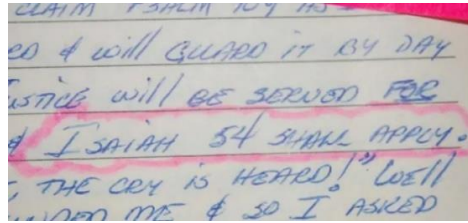 CLAIM PSALM 109 AS
& will GUARD IT BY DAY
JUSTICE will BE SERVED FOR
& ISAIAH 54 SHALL APPLY.
THE CRY IS HEARD!" WELL
ME & SO I ASKED